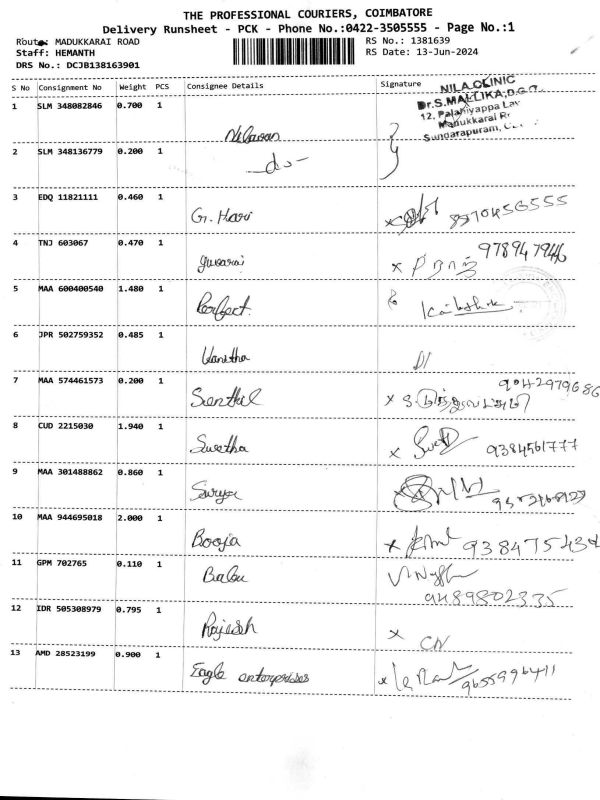 THE PROFESSIONAL COURIERS, COIMBATORE
Delivery Runsheet - PCK - Phone No:0422-3505555 - Page No.:1
Route: MADUKKARAI ROAD RS No.: 1381639
Staff: HEMANTH RS Date: 13-Jun-2024
DRS No.: DCJB138163901
S No Consignment No Weight PCS Consignee Details Signature
NILA CLINIC
Dr.S.MALLIKA,D.G.O.
12, Palaniyappa
Madukkarai
Sundarapuram,
1 SLM 348082846 0.700 1
2 SLM 348136779 0.200 1 -do-
3 EDQ 11821111 0.460 1 G. Hari
4 TNJ 603067 0.470 1
5 MAA 600400540 1.480 1 Perfect.
6 JPR 502759352 0.485 1 Vanitha DL
7 MAA 574461573 0.200 1 Senthil 9042979686
8 CUD 2215030 1.940 1 Swetha 9384561777
9 MAA 301488862 0.860 1 Surya
10 MAA 944695018 2.000 1 Booja
11 GPM 702765 0.110 1 Babu
9489802335
12 IDR 505308979 0.795 1 Rajesh x CN
13 AMD 28523199 0.900 1 Eagle enterprises 9655996411